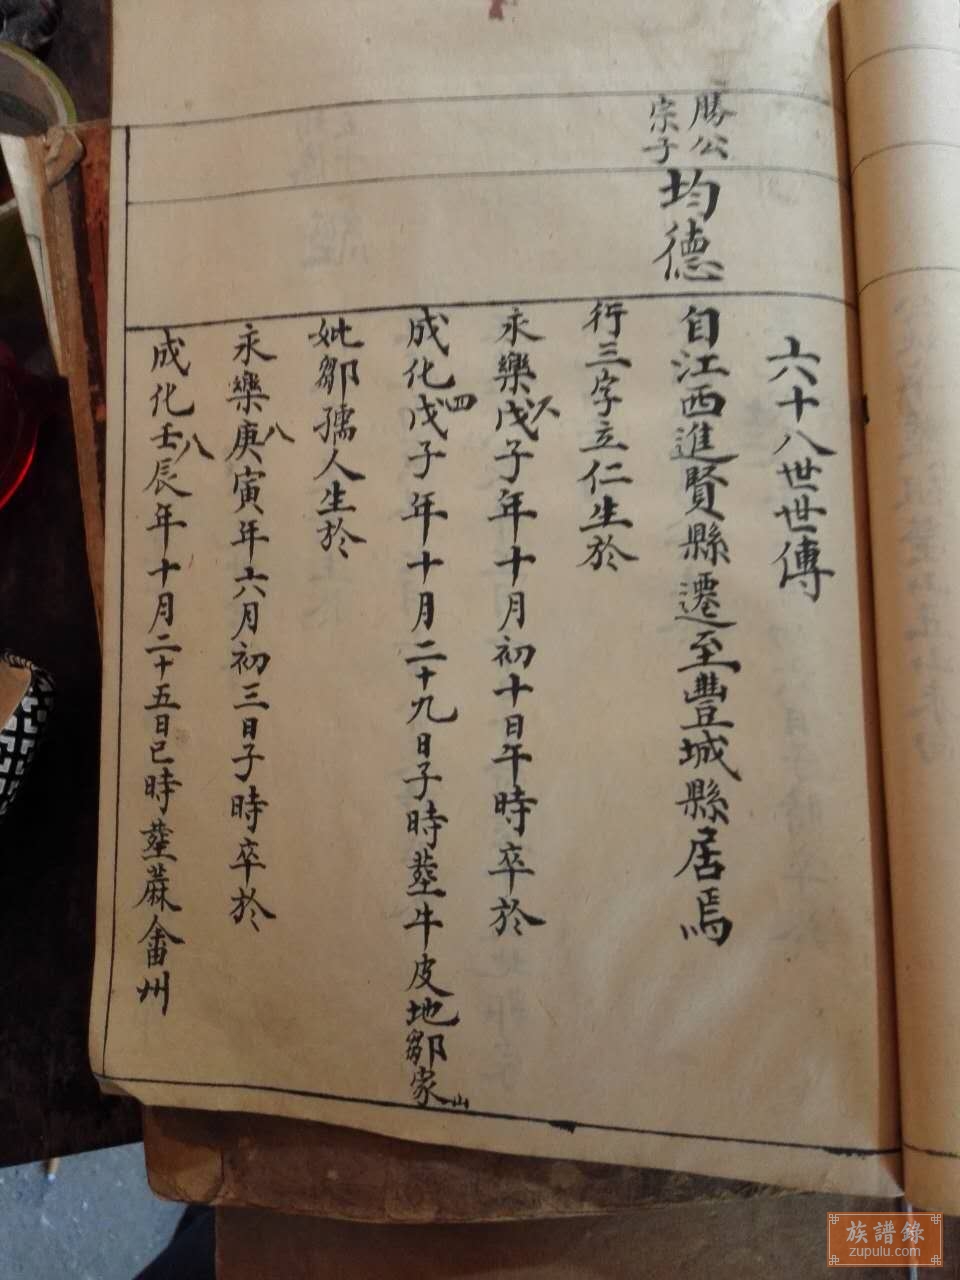 六十八世世傳
勝公
宗子
均德
自江西進賢縣遷至豐城縣居焉
行三字立仁生於
永樂戊子年十月初十日午時卒於
六
成化戊子年十月二十九日子時塟牛皮地鄒家山
四
妣鄒孺人生於
永樂庚寅年六月初三日子時卒於
八
成化壬辰年十月二十五日巳時塟蔴畬州
八
族譜錄
zupulu.com